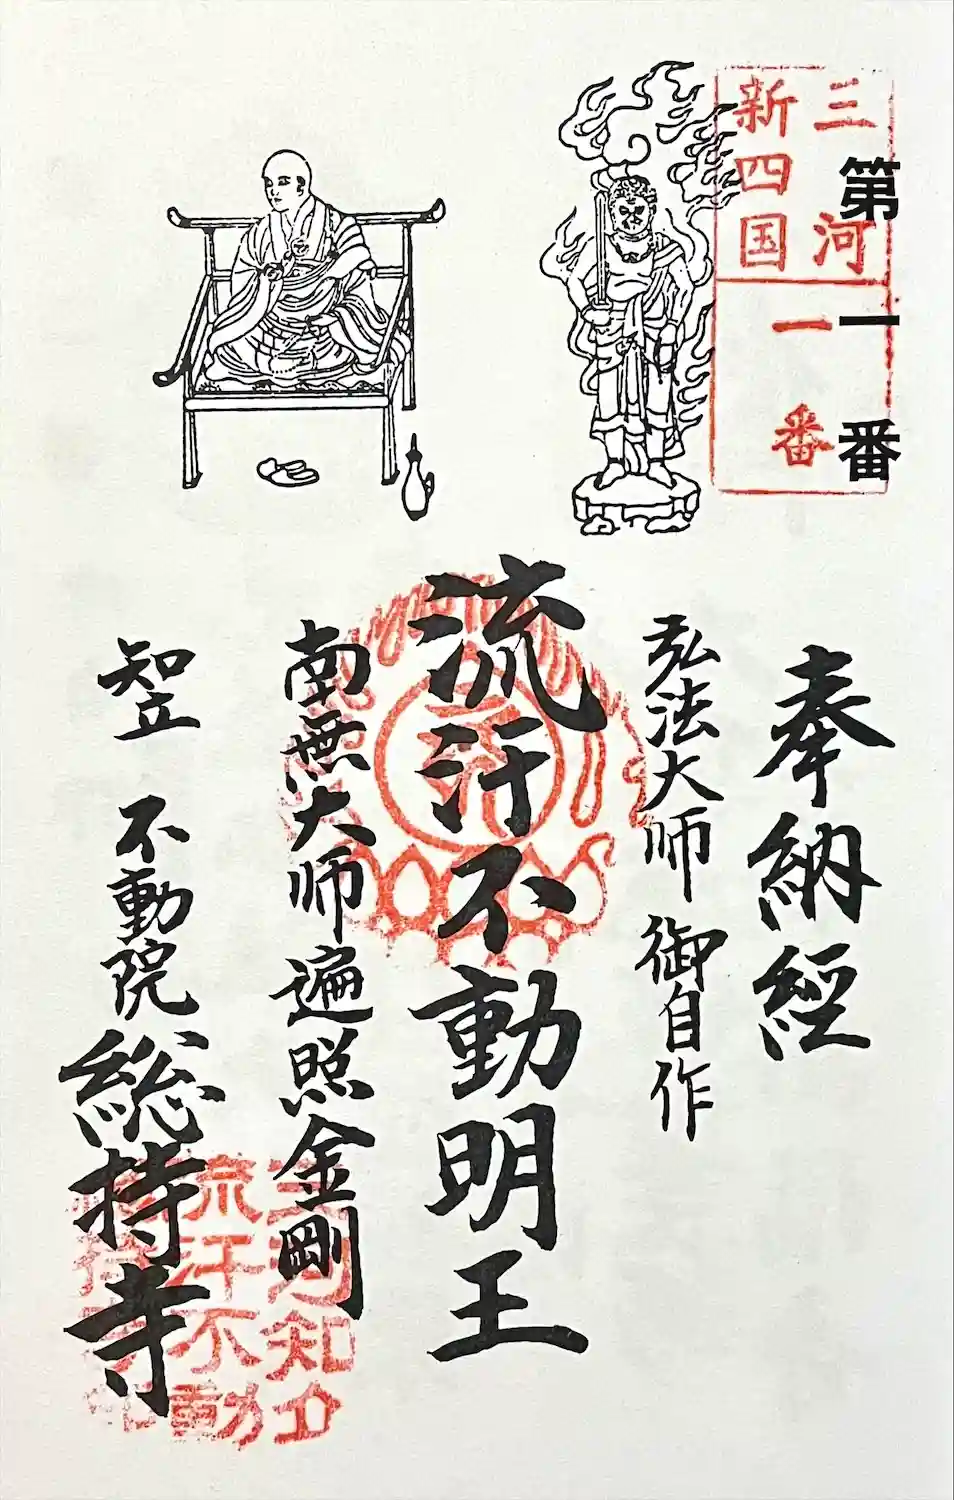 第一番
三河
新四国
一番
奉納經
弘法大师 御自作
流汗不動明王
南無大师遍照金剛
知立 不動院 総持寺
三河知立
流汗不動